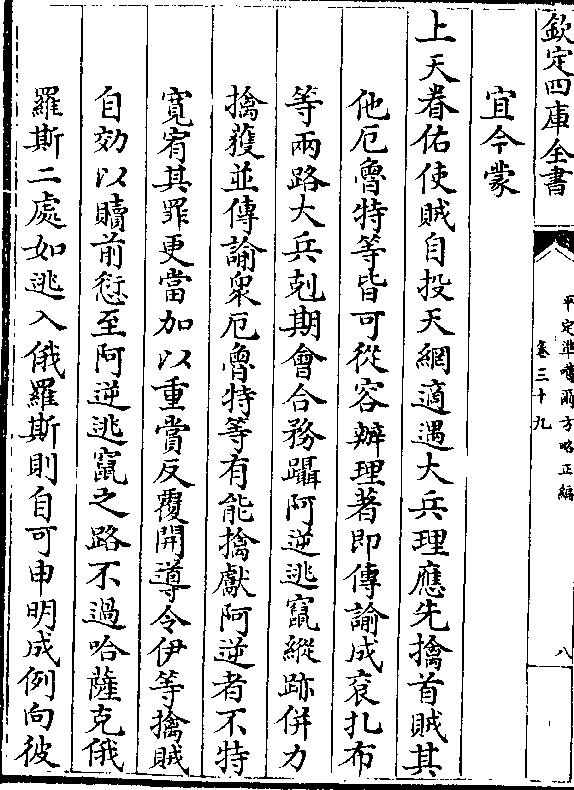 欽定四庫全書
平定準噶爾方略正編
卷三十九
八
宜今蒙
上天眷佑使賊自投天網適遇大兵理應先擒首賊其
他厄魯特等皆可從容辦理著即傳諭成衮扎布
等兩路大兵剋期會合務躡阿逆逃竄縱跡併力
擒獲並傳諭衆厄魯特等有能擒獻阿逆者不特
寛宥其罪更當加以重賞反覆開導令伊等擒賊
自効以贖前愆至阿逆逃竄之路不過哈薩克俄
羅斯二處如逃入俄羅斯則自可申明成例向彼